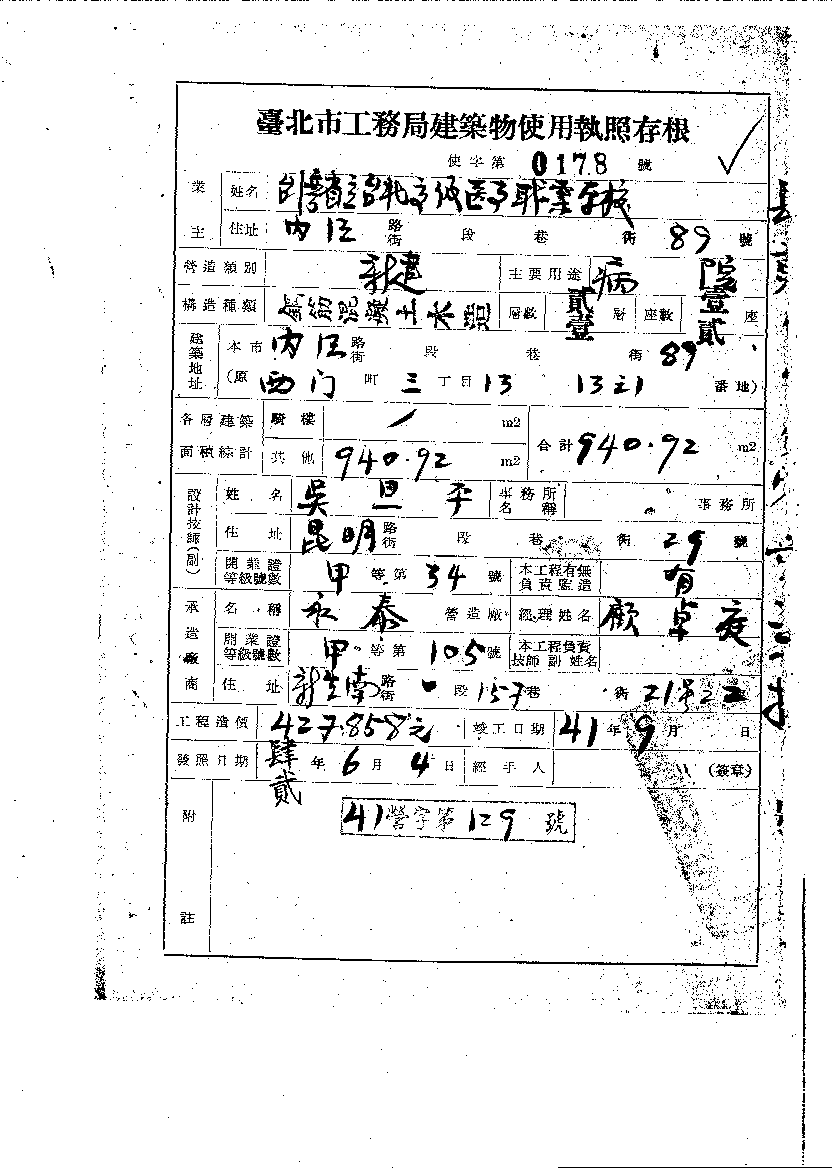 臺北市工務局建築物使用執照存根
使字第 0178 號
業主 姓名 台灣省立台北高級醫事職業學校
住址 內江 路街 段 巷 衖 89 號
營造類別 新建 主要用途 病院
構造種類 鋼筋混凝土木造 層數 貳壹 層 座數 壹貳 座
建築地址 本市 內江 路街 段 巷 衖 89
(原 西门 町 三 丁目 13 13之1 番地)
各層建築面積綜計 騎樓 / m2 合計 940.92 m2
其他 940.92 m2
設計技師(副) 姓名 吳旦平 事務所名稱 事務所
住址 昆明 路街 段 巷 衖 29 號
開業證等級號數 甲 等第 34 號 本工程有無負責監造 有
承造廠商 名稱 永泰 營造廠 經理姓名 顧卓庭
開業證等級號數 甲 等第 105 號 本工程負責技師副姓名
住址 新生南 路街 段 157 巷 衖 21号之
工程造價 427.858元 竣工日期 41 年 9 月 日
發照日期 肆貳 年 6 月 4 日 經手人 (簽章)
41營字第129號
附註